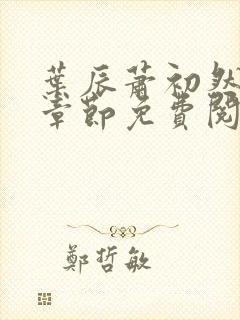 葉辰蕭初然
章節免費閱
鄭哲敏